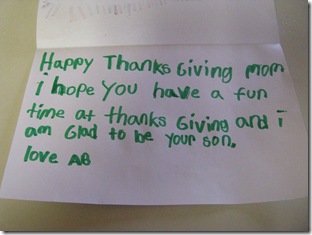 Happy Thanks Giving mom
i hope you have a fun
time at thanks Giving and i
am Glad to be your son.
love AB